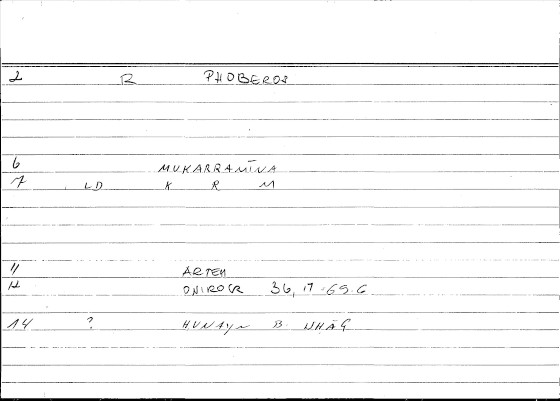 2 R PHOBEROS
6 MUKARRAMĪNA
7 LD K R M
11 ARTEM
12 ONIROCR 36, 17 - 69.6
14 ? HUNAYN B ISHĀQ